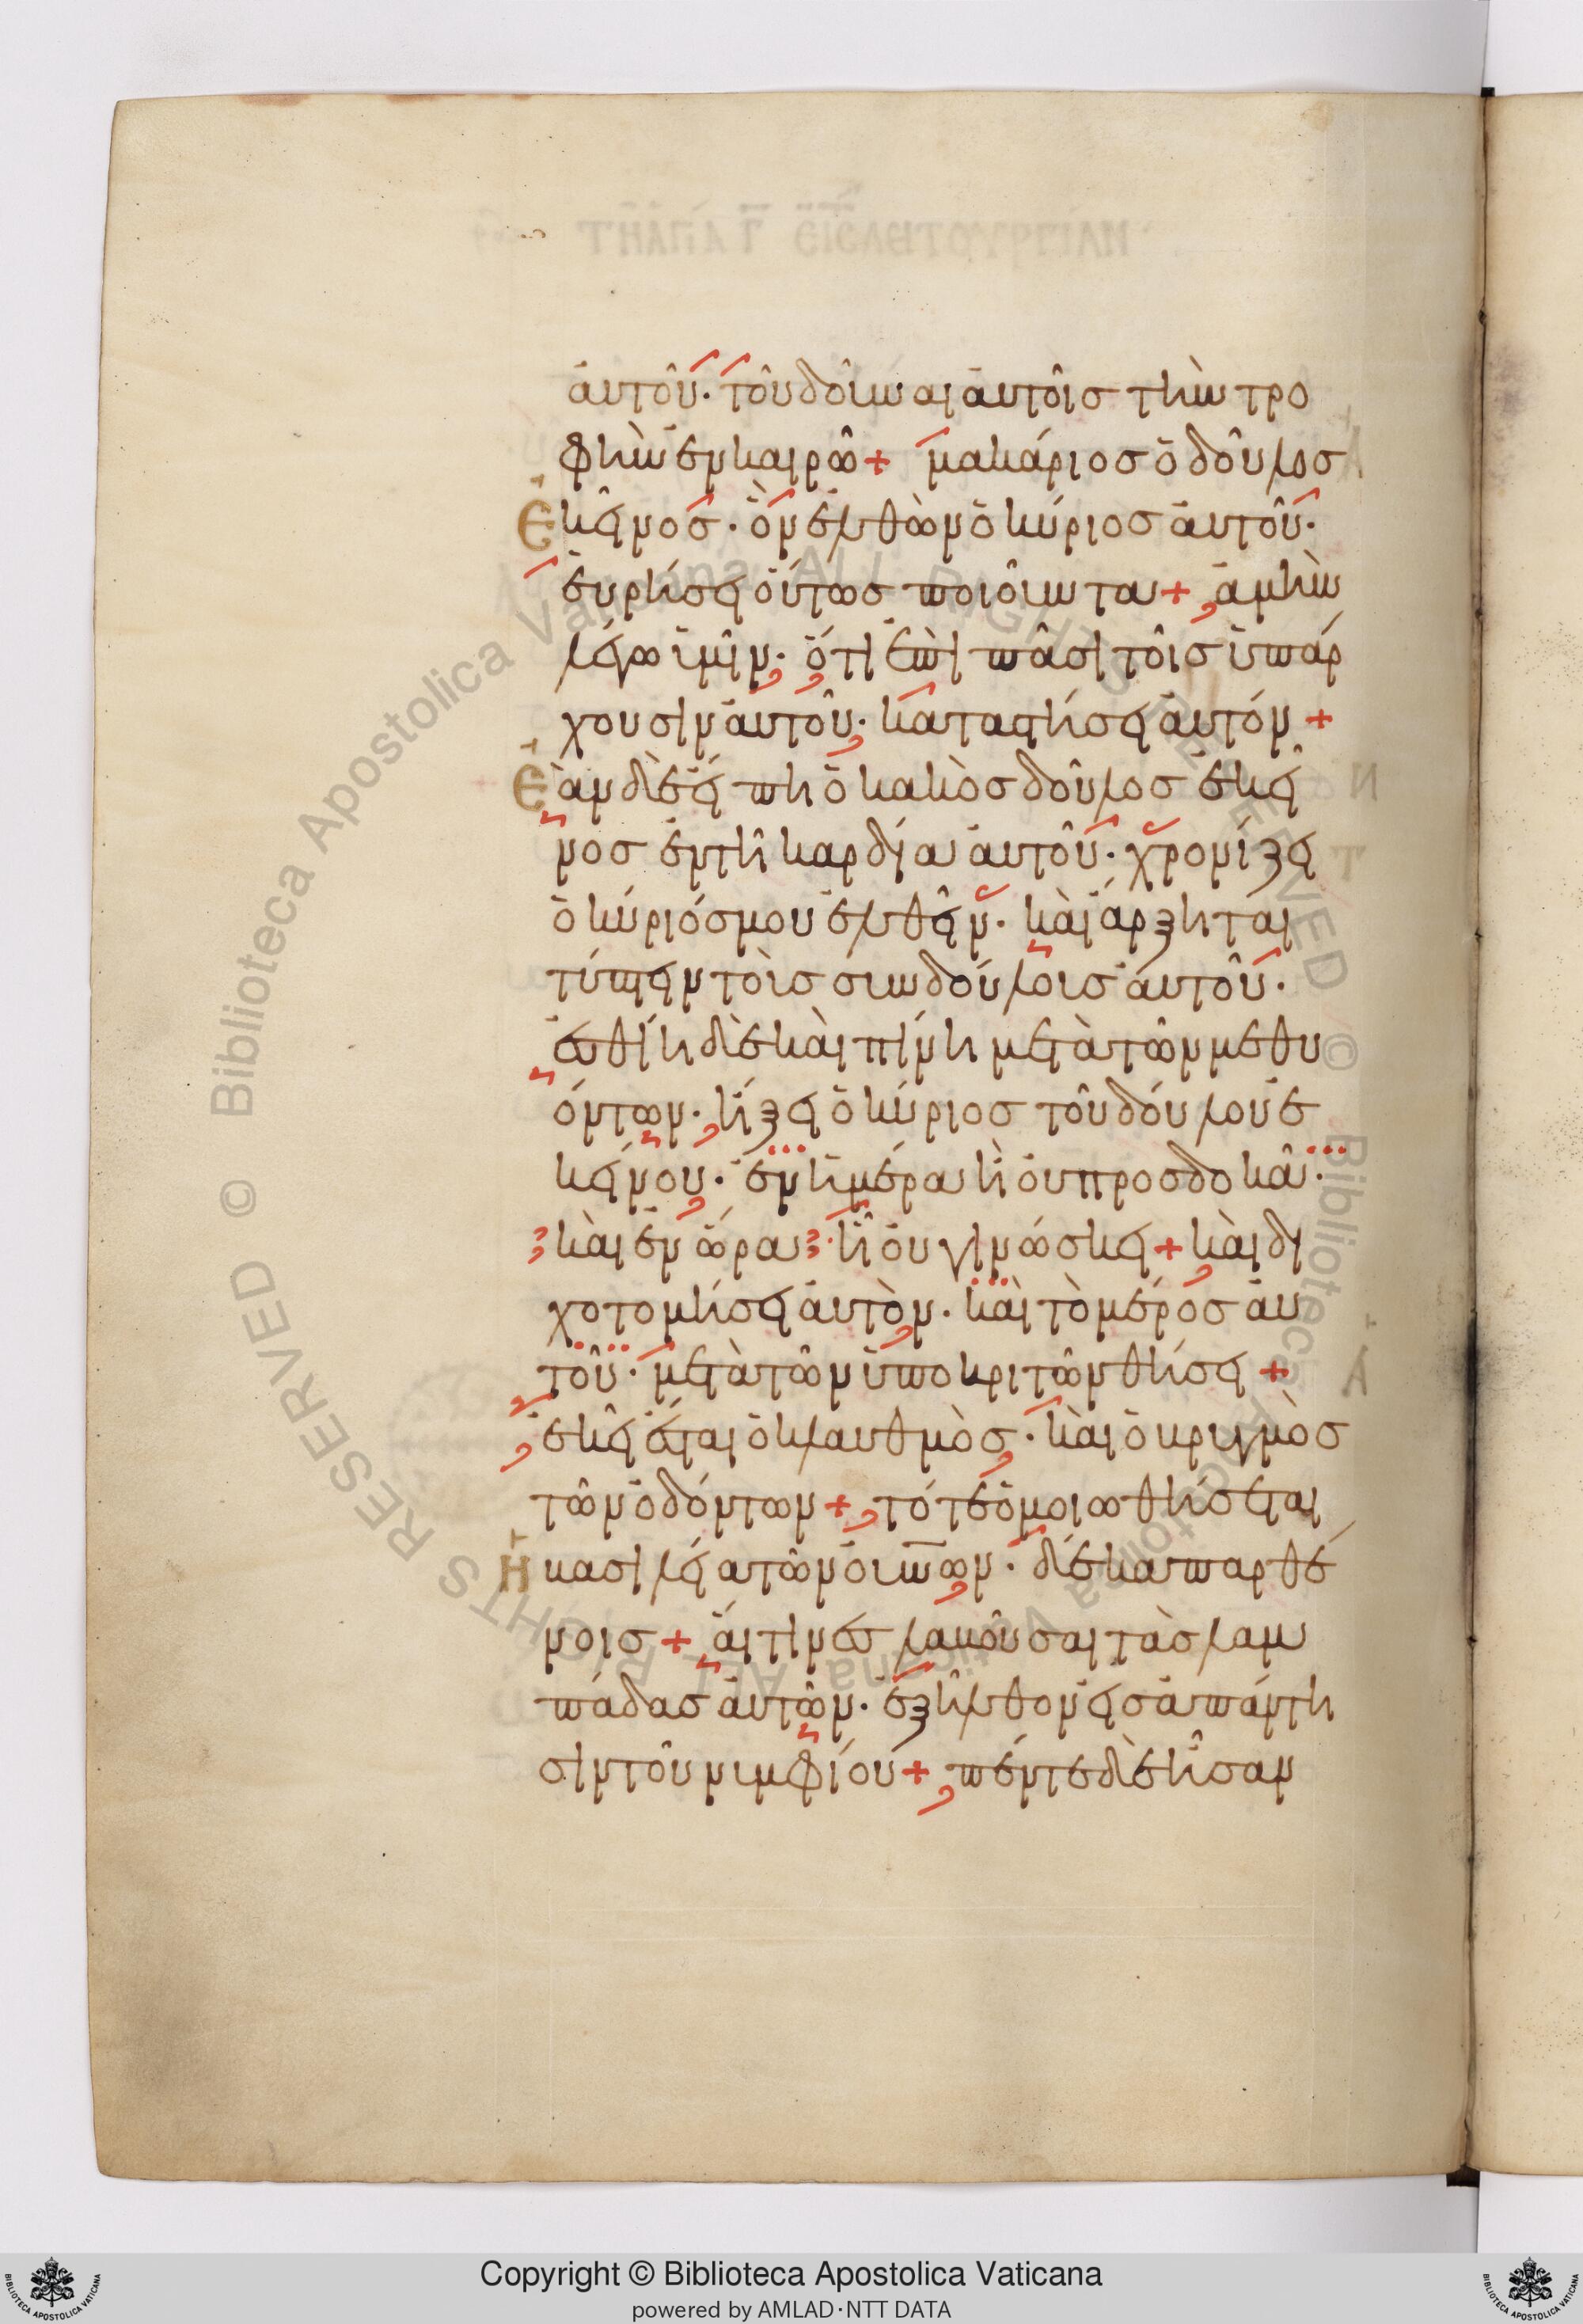 αὐτοῦ· τοῦ δοῦναι αὐτοῖς τὴν τρο
φὴν ἐν καιρῶ + μακάριος ὁ δοῦλος
ἐκεῖνος· ὃν ἐλθὼν ὁ κύριος αὐτοῦ·
εὑρήσει οὕτως ποιοῦντα + ἀμὴν
λέγω ὑμῖν· ὅτι ἐπὶ πᾶσι τοῖς ὑπάρ
χουσιν αὐτοῦ· καταστήσει αὐτόν +
Ἐὰν δὲ εἴπη ὁ κακὸς δοῦλος ἐκεῖ
νος ἐν τῆ καρδία αὐτοῦ· χρονίζει
ὁ κύριός μου ἐλθεῖν· καὶ ἄρξηται
τύπτειν τοὺς συνδούλους αὐτοῦ·
ἐσθίη δὲ καὶ πίνη μετὰ τῶν μεθυ
όντων· ἥξει ὁ κύριος τοῦ δούλου ἐ
κείνου· ἐν ἡμέρα ἧ οὐ προσδοκᾶ·
καὶ ἐν ὥρα ἧ οὐ γινώσκει + καὶ δι
χοτομήσει αὐτὸν· καὶ τὸ μέρος αὐ
τοῦ· μετὰ τῶν ὑποκριτῶν θήσει +
ἐκεῖ ἔσται ὁ κλαυθμὸς· καὶ ὁ βρυγμὸς
τῶν ὀδόντων + τότε ὁμοιωθήσεται
ἡ βασιλεία τῶν οὐνων· δέκα παρθέ
νοις + αἵτινες λαβοῦσαι τὰς λαμ
πάδας αὐτῶν· ἐξῆλθον εἰς ἀπάντη
σιν τοῦ νυμφίου + πέντε δὲ ἦσαν
Copyright © Biblioteca Apostolica Vaticana
powered by AMLAD·NTT DATA